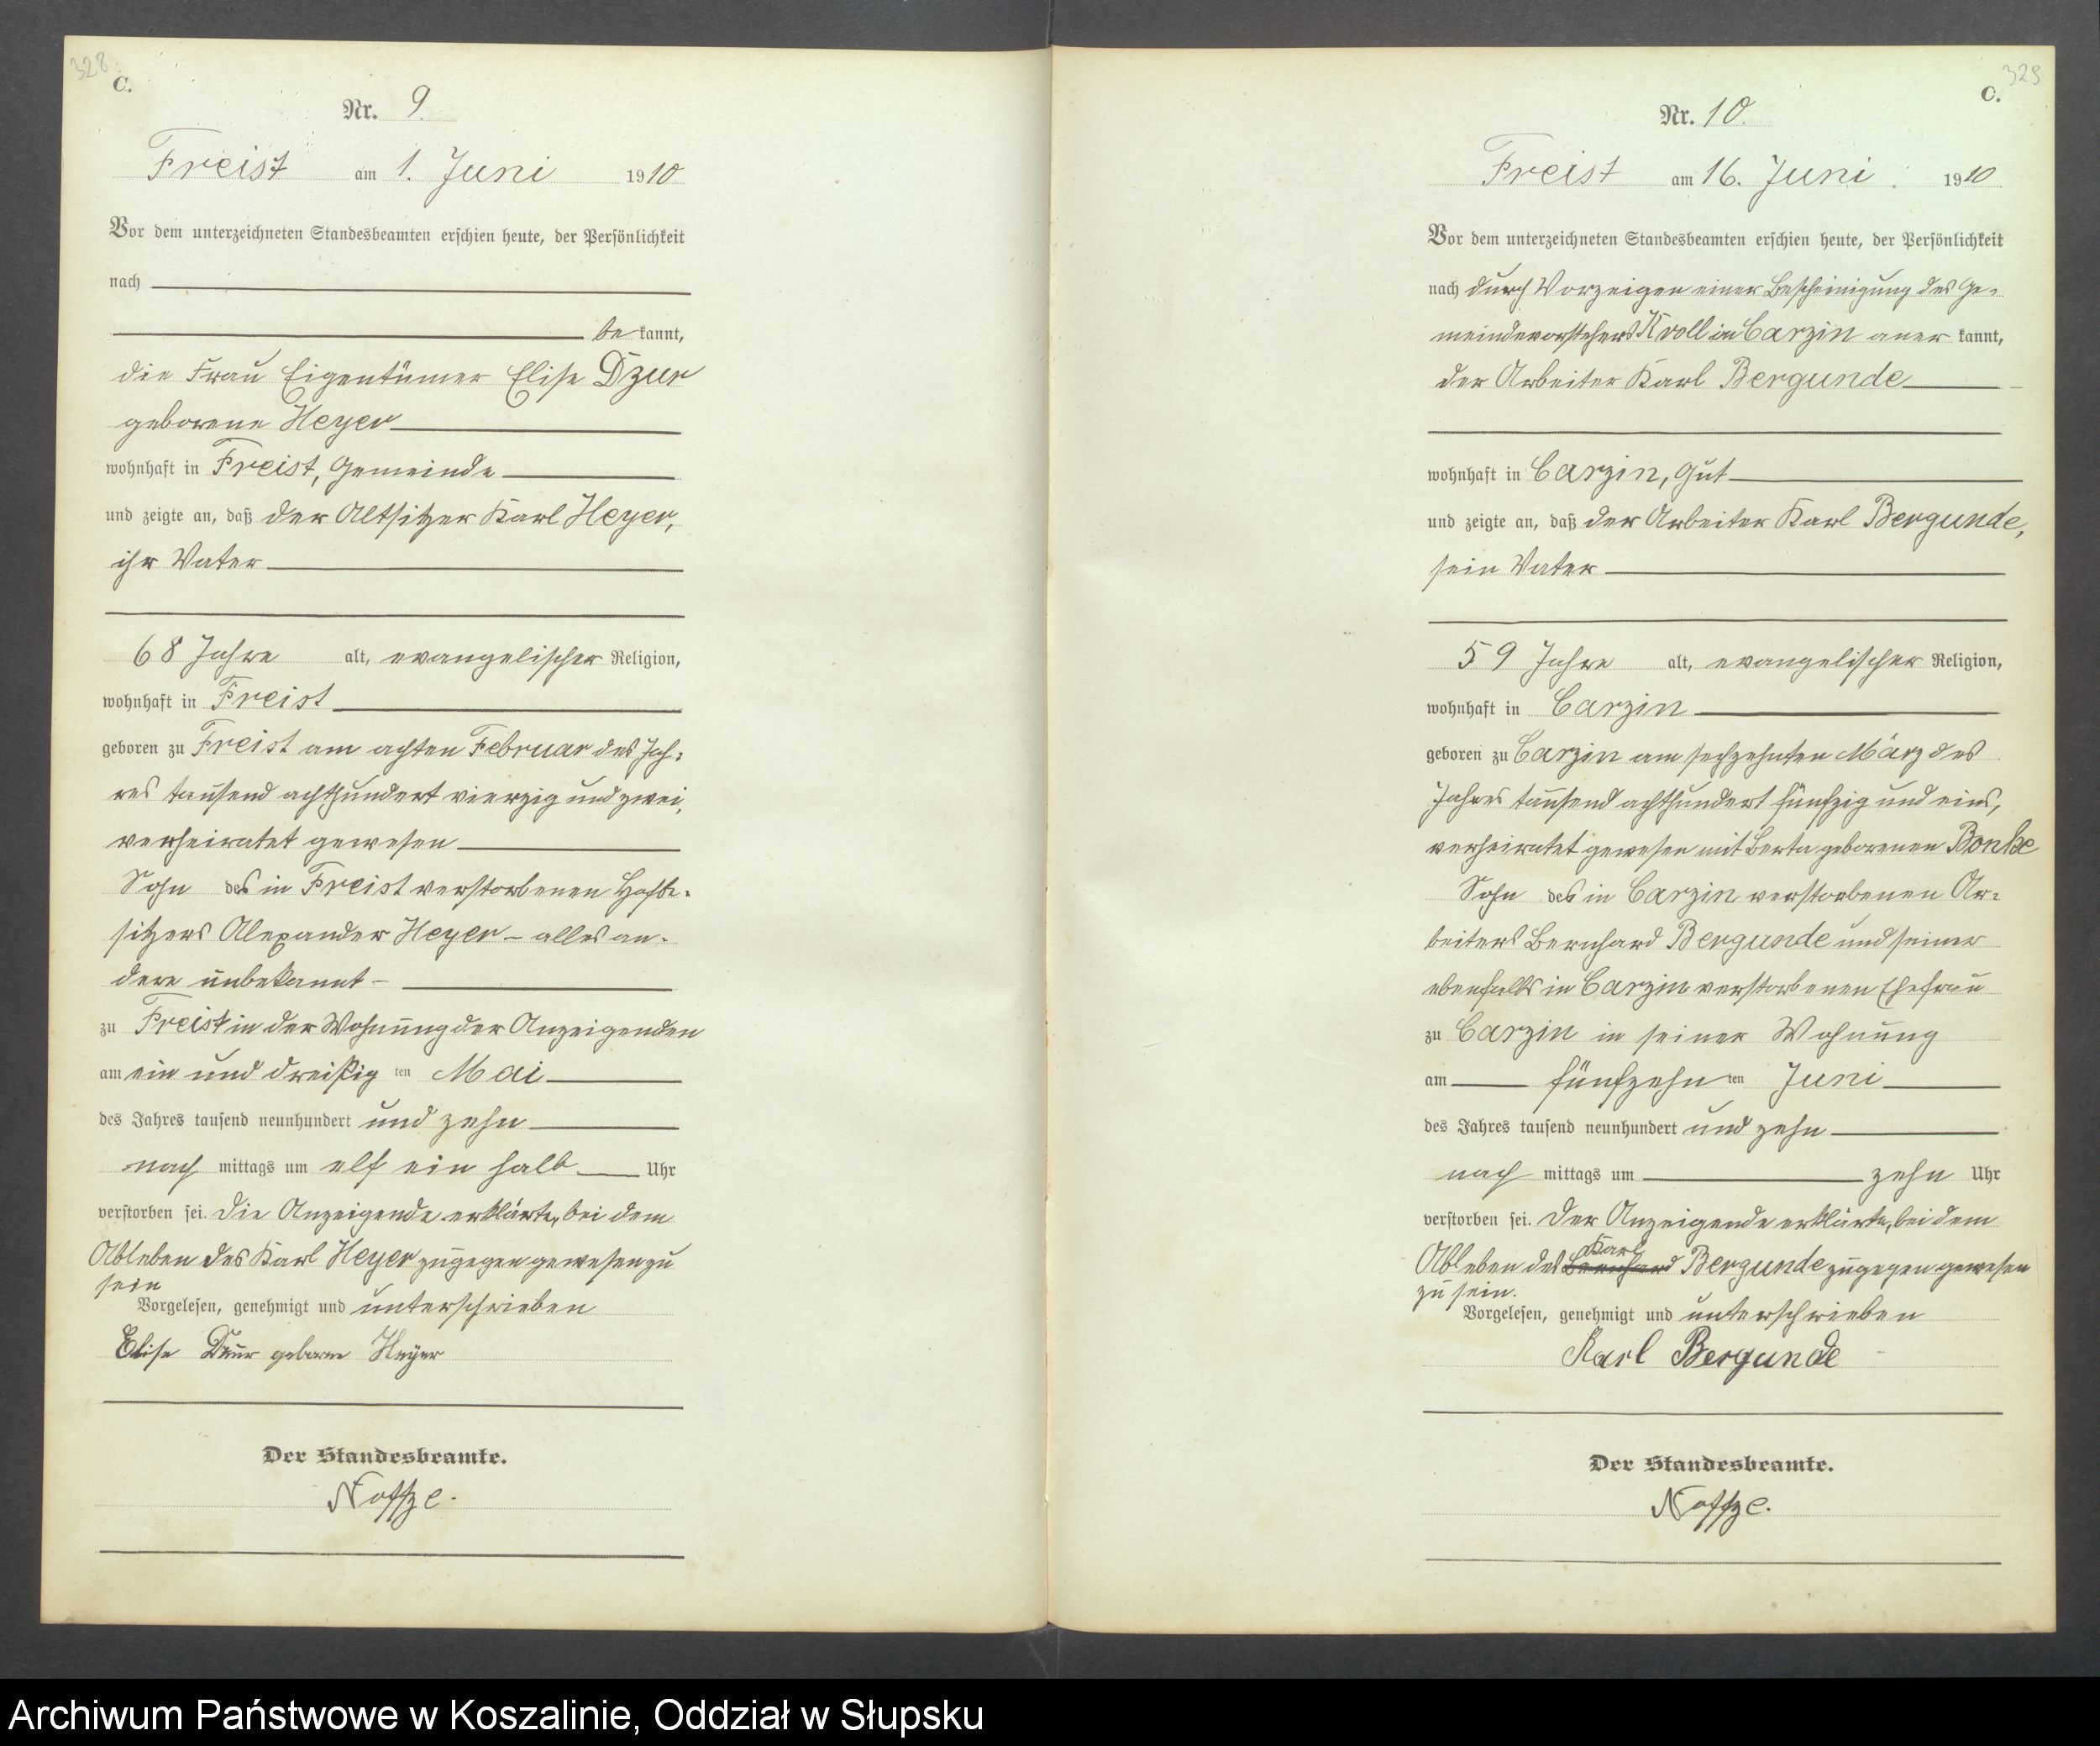 328
C.
Nr. 9.
Freist am 1. Juni 1910
Vor dem unterzeichneten Standesbeamten erschien heute, der Persönlichkeit
nach
be kannt,
die Frau Eigentümer Elise Dzur
geborene Heyer
wohnhaft in Freist, Gemeinde
und zeigte an, daß der Altsitzer Karl Heyer,
ihr Vater
68 Jahre alt, evangelischer Religion,
wohnhaft in Freist
geboren zu Freist am achten Februar des Jah-
res tausend achthundert vierzig und zwei,
verheiratet gewesen
Sohn des in Freist verstorbenen Hofbe-
sitzers Alexander Heyer – alles an-
dere unbekannt –
zu Freist in der Wohnung der Anzeigenden
am ein und dreißig ten Mai
des Jahres tausend neunhundert und zehn
nach mittags um elf ein halb Uhr
verstorben sei. Die Anzeigende erklärte, bei dem
Ableben des Karl Heyer zugegen gewesen zu
sein
Vorgelesen, genehmigt und unterschrieben
Elise Dzur geborne Heyer
Der Standesbeamte.
Noffze.
329
C.
Nr. 10.
Freist am 16. Juni 1910
Vor dem unterzeichneten Standesbeamten erschien heute, der Persönlichkeit
nach durch Vorzeigen einer Bescheinigung des Ge-
meindevorstehers Kroll in Carzin aner kannt,
der Arbeiter Karl Bergunde
wohnhaft in Carzin, Gut
und zeigte an, daß der Arbeiter Karl Bergunde,
sein Vater
59 Jahre alt, evangelischer Religion,
wohnhaft in Carzin
geboren zu Carzin am sechzehnten März des
Jahres tausend achthundert fünfzig und eins,
verheiratet gewesen mit Berta geborenen Bonke
Sohn des in Carzin verstorbenen Ar-
beiters Bernhard Bergunde und seiner
ebenfalls in Carzin verstorbenen Ehefrau
zu Carzin in seiner Wohnung
am fünfzehn ten Juni
des Jahres tausend neunhundert und zehn
nach mittags um zehn Uhr
verstorben sei. Der Anzeigende erklärte, bei dem
Karl
Ableben des Bernhard Bergunde zugegen gewesen
zu sein.
Vorgelesen, genehmigt und unterschrieben
Karl Bergunde
Der Standesbeamte.
Noffze.
Archiwum Państwowe w Koszalinie, Oddział w Słupsku